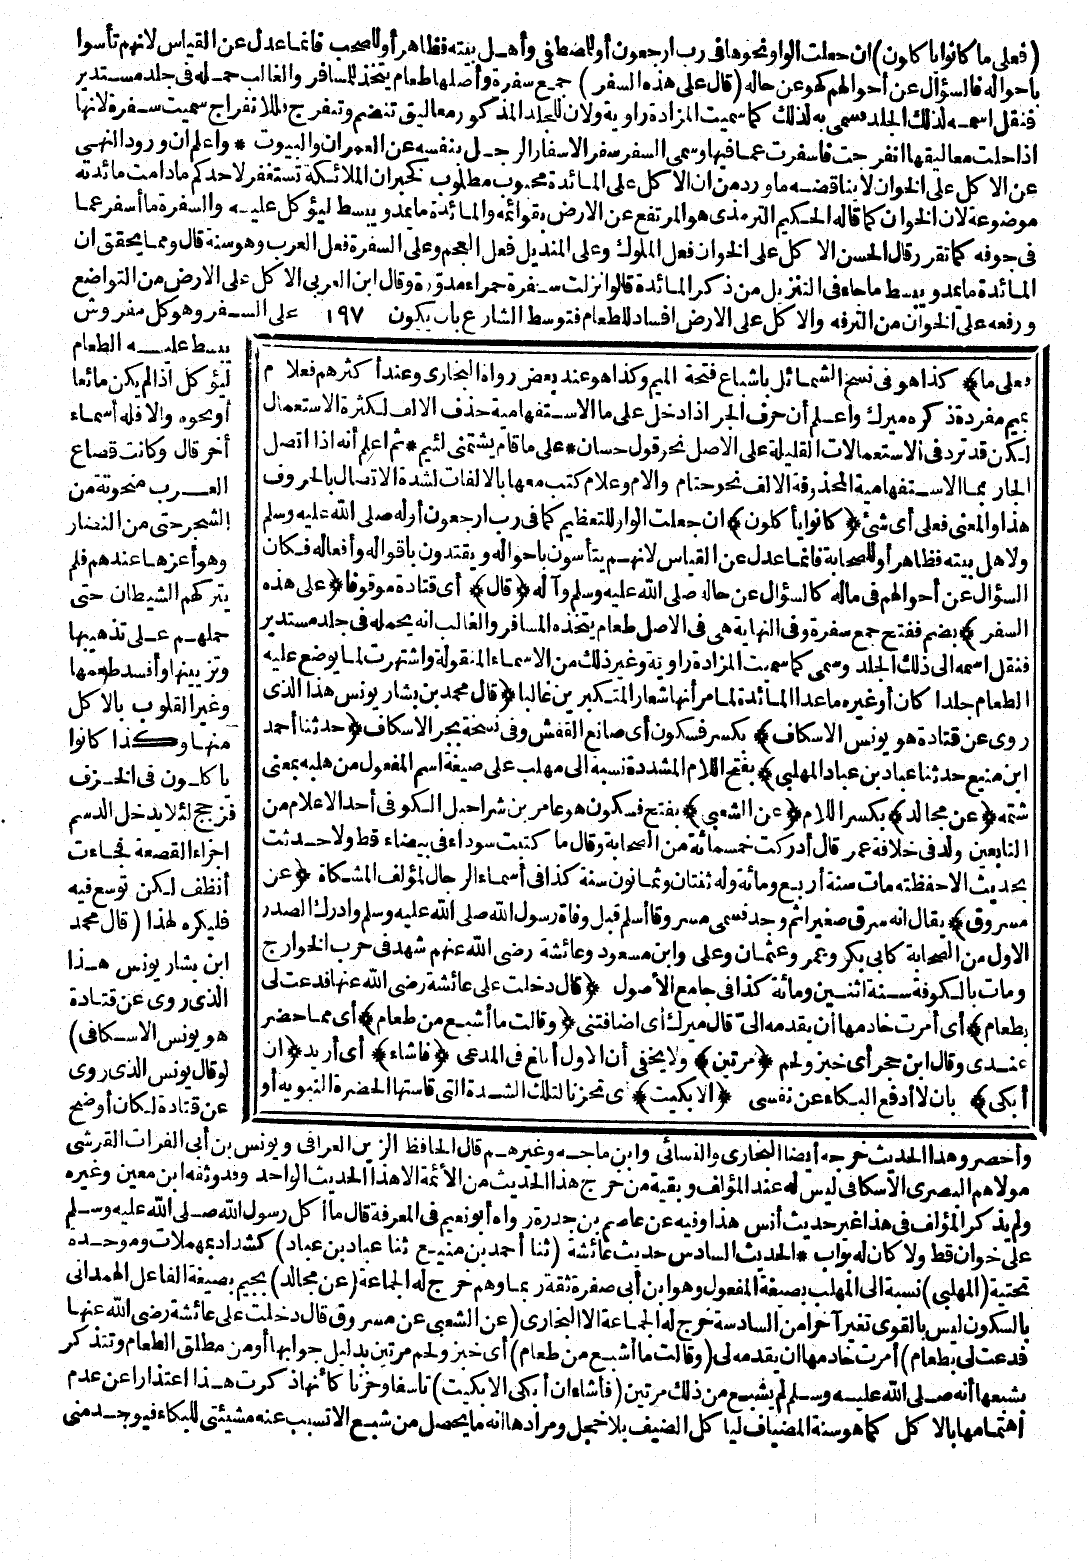 (فعلى ما كانوا يأكلون) ان جعلت الواو نحوها فى رب ارجعون أو للمصطفى وأهل بيته فظاهر أو للصحب فانما عدل عن القياس لانهم تأسوا
بأحواله فالسؤال عن أحوالهم كهو عن حاله (قال على هذه السفر) جمع سفرة وأصلها طعام يتخذ للمسافر والغالب حمله فى جلد مستدير
فنقل اسمه لذلك الجلد فسمى به لذلك كما سميت المزادة راوية ولان للجلد المذكور معاليق تنضم وتنفرج فللانفراج سميت سفرة لانها
اذا حلت معاليقها انفرجت فاسفرت عما فيها وسمى السفر سفر الاسفار الرجل بنفسه عن العمران والبيوت * واعلم ان ورود النهى
عن الاكل على الخوان لا يناقضه ما ورد من ان الاكل على المائدة محبوب مطلوب كخبران الملائكة تستغفر لاحدكم مادامت مائدته
موضوعة لان الخوان كما قاله الحكيم الترمذى هو المرتفع عن الارض بقوائمه والمائدة ما يمد و يبسط ليؤكل عليه والسفرة ما أسفر عما
فى جوفه كما تقرر قال الحسن الاكل على الخوان فعل الملوك وعلى المنديل فعل العجم وعلى السفرة فعل العرب وهو سنة قال ومما يحقق ان
المائدة ما يمد و يبسط ما جاء فى التنزيل من ذكر المائدة قالوا نزلت سفرة حمراء مدورة وقال ابن العربى الاكل على الارض من التواضع
و رفعه على الخوان من الترفه والاكل على الارض افساد للطعام فتوسط الشارع بان يكون ١٩٧ على السفر وهو كل مفروش
يبسط عليه الطعام
ليؤكل اذا لم يكن مائعا
أو نحوه والا فله أسماء
أخر قال وكانت قصاع
العرب منحوتة من
الشجر حتى من النضار
وهو أعزها عندهم فلم
يتركهم الشيطان حتى
حملهم على تذهيبها
وتزيينها وأفسد طعمها
وغير القلوب بالاكل
منها وكذا كانوا
ياكلون فى الخزف
فزجج لئلا يدخل الدسم
اجزاء القصعة فجاءت
أنظف لكن توسع فيه
فليكره لهذا (قال محمد
ابن بشار يونس هذا
الذى روى عن قتادة
هو يونس الاسكافى)
لو قال يونس الذى روى
عن قتادة لكان أوضح
فعلى ما﴾ كذا هو فى نسخ الشمائل باشباع فتحة الميم وكذا هو عند بعض رواة البخارى وعند أكثرهم فعلام
بميم مفردة ذكره ميرك واعلم أن حرف الجر اذا دخل على ما الاستفهامية حذف الالف لكثرة الاستعمال
لكن قد ترد فى الاستعمالات القليلة على الاصل نحو قول حسان * على ما قام يشتمنى لئيم * ثم اعلم أنه اذا اتصل
الجار بما الاستفهامية المحذوفة الالف نحو حتام والام وعلام كتب معها بالالفات لشدة الاتصال بالحروف
هذا والمعنى فعلى أى شئ ﴿كانوا يأكلون﴾ ان جعلت الواو للتعظيم كما فى رب ارجعون أوله صلى الله عليه وسلم
ولاهل بيته فظاهر أو للصحابة فانما عدل عن القياس لانهم يتأسون باحواله و يقتدون بأقواله وأفعاله فكان
السؤال عن أحوالهم فى مآله كالسؤال عن حاله صلى الله عليه وسلم وآله ﴿قال﴾ أى قتادة موقوفا ﴿على هذه
السفر﴾ بضم ففتح جمع سفرة وفى النهاية هى فى الاصل طعام يتخذه المسافر والغالب انه يحمله فى جلد مستدير
فنقل اسمه الى ذلك الجلد وسمى كما سميت المزادة راوية وغير ذلك من الاسماء المنقولة واشتهرت لما يوضع عليه
الطعام جلدا كان أو غيره ما عدا المائدة لما مر أنها شعار المتكبرين غالبا ﴿قال محمد بن بشار يونس هذا الذى
روى عن قتادة هو يونس الاسكاف﴾ بكسر فسكون أى صانع القفش وفى نسخة بجر الاسكاف ﴿حدثنا أحمد
ابن منيع حدثنا عباد بن عباد المهلبي﴾ بفتح اللام المشددة نسبة الى مهلب على صيغة اسم المفعول من هلبه بمعنى
شتمه ﴿عن مجالد﴾ بكسر اللام ﴿عن الشعبي﴾ بفتح فسكون هو عامر بن شراحيل الكوفى أحد الاعلام من
التابعين ولد فى خلافة عمر قال أدركت خمسمائة من الصحابة وقال ما كتبت سوداء فى بيضاء قط ولا حدثت
بحديث الا حفظته مات سنة أربع ومائة وله ثنتان وثمانون سنة كذا فى أسماء الرجال لمؤلف المشكاة ﴿عن
مسروق﴾ يقال انه سرق صغيرا ثم وجد فسمى مسروقا أسلم قبل وفاة رسول الله صلى الله عليه وسلم وادرك الصدر
الاول من الصحابة كابى بكر وعمر وعثمان وعلى وابن مسعود وعائشة رضى الله عنهم شهد فى حرب الخوارج
ومات بالكوفة سنة اثنين ومائة كذا فى جامع الأصول ﴿قال دخلت على عائشة رضى الله عنها فدعت لى
بطعام﴾ أى أمرت خادمها أن يقدمه الىّ قال ميرك أى اضافتنى ﴿وقالت ما أشبع من طعام﴾ أى مما حضر
عندى وقال ابن حجر أى خبز ولحم ﴿مرتين﴾ ولا يخفى أن الاول أبلغ فى المدعى ﴿فاشاء﴾ أى أريد ﴿ان
أبكى﴾ بان لا أدفع البكاء عن نفسى ﴿الا بكيت﴾ أى تحزنا لتلك الشدة التى قاستها الحضرة النبوية أو
وأخصر وهذا الحديث خرجه أيضا البخارى والنسائى وابن ماجه وغيرهم قال الحافظ الزين العراقى و يونس بن أبى الفرات القرشى
مولاهم البصرى الأسكافى ليس له عند المؤلف و بقية من خرج هذا الحديث من الأئمة الا هذا الحديث الواحد وقد وثقه ابن معين وغيره
ولم يذكر المؤلف فى هذا غير حديث أنس هذا وفيه عن عاصم بن حدرة رواه أبو نعيم فى المعرفة قال ما أكل رسول الله صلى الله عليه وسلم
على خوان قط ولا كان له بواب * الحديث السادس حديث عائشة (ثنا أحمد بن منيع ثنا عباد بن عباد) كشداد بمهملات وموحدة
تحتية (المهلبى) نسبة الى المهلب بصيغة المفعول وهو ابن أبى صفرة ثقة ربما وهم خرج له الجماعة (عن مجالد) بجيم بصيغة الفاعل الهمدانى
بالسكون ليس بالقوى تغير آخرا من السادسة خرج له الجماعة الا البخارى (عن الشعبى عن مسروق قال دخلت على عائشة رضى الله عنها
فدعت لى بطعام) أمرت خادمها ان يقدمه لى (وقالت ما أشبع من طعام) أى خبز ولحم مرتين بدليل جوابها أو من مطلق الطعام وتتذكر
بشبعها أنه صلى الله عليه وسلم لم يشبع من ذلك مرتين (فأشاء ان أبكى الا بكيت) تأسفا وحزنا كأنها ذكرت هذا اعتذارا عن عدم
اهتمامها بالاكل كما هو سنة المضياف ليأكل الضيف بلا خجل ومرادها انه ما يحصل من شبع الا تسبب عنه مشيئتى للبكاء فيوجد منى